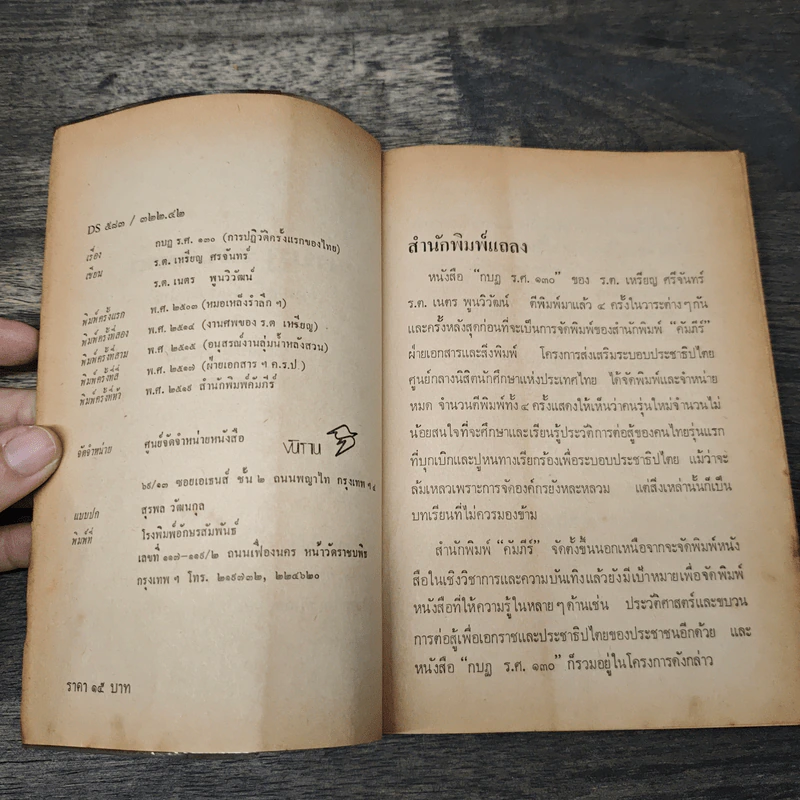 DS ๕๘๓ / ๓๒๒.๔๒
เรื่อง กบฏ ร.ศ. ๑๓๐ (การปฏิวัติครั้งแรกของไทย)
เขียน ร.ต. เหรียญ ศรจันทร์
ร.ต. เนตร พูนวิวัฒน์
พิมพ์ครั้งแรก พ.ศ. ๒๕๐๓ (หมอเหล็งรำลึก ฯ)
พิมพ์ครั้งที่สอง พ.ศ. ๒๕๑๔ (งานศพของ ร.ต เหรียญ)
พิมพ์ครั้งที่สาม พ.ศ. ๒๕๑๕ (อนุสรณ์งานลุ่มน้ำหลังสวน)
พิมพ์ครั้งที่สี่ พ.ศ. ๒๕๑๗ (ฝ่ายเอกสาร ฯ ค.ร.ป.)
พิมพ์ครั้งที่ห้า พ.ศ. ๒๕๑๙ สำนักพิมพ์คัมภีร์
จัดจำหน่าย ศูนย์จัดจำหน่ายหนังสือ
๖๙/๑๓ ซอยเอเธนส์ ชั้น ๒ ถนนพญาไท กรุงเทพ ฯ ๔
แบบปก สุรพล วัฒนกุล
พิมพ์ที่ โรงพิมพ์อักษรสัมพันธ์
เลขที่ ๑๑๗-๑๑๙/๒ ถนนเฟื่องนคร หน้าวัดราชบพิธ
กรุงเทพ ฯ โทร. ๒๑๙๗๓๒, ๒๒๔๖๒๐
ราคา ๑๕ บาท
สำนักพิมพ์แถลง
หนังสือ "กบฏ ร.ศ. ๑๓๐" ของ ร.ต. เหรียญ ศรีจันทร์
ร.ต. เนตร พูนวิวัฒน์ ตีพิมพ์มาแล้ว ๔ ครั้งในวาระต่างๆกัน
และครั้งหลังสุดก่อนที่จะเป็นการจัดพิมพ์ของสำนักพิมพ์ "คัมภีร์"
ฝ่ายเอกสารและสิ่งพิมพ์ โครงการส่งเสริมระบอบประชาธิปไตย
ศูนย์กลางนิสิตนักศึกษาแห่งประเทศไทย ได้จัดพิมพ์และจำหน่าย
หมด จำนวนตีพิมพ์ทั้ง ๔ ครั้งแสดงให้เห็นว่าคนรุ่นใหม่จำนวนไม่
น้อยสนใจที่จะศึกษาและเรียนรู้ประวัติการต่อสู้ของคนไทยรุ่นแรก
ที่บุกเบิกและปูหนทางเรียกร้องเพื่อระบอบประชาธิปไตย แม้ว่าจะ
ล้มเหลวเพราะการจัดองค์กรยังหละหลวม แต่สิ่งเหล่านั้นก็เป็น
บทเรียนที่ไม่ควรมองข้าม
สำนักพิมพ์ "คัมภีร์" จัดตั้งขึ้นนอกเหนือจากจะจัดพิมพ์หนัง
สือในเชิงวิชาการและความบันเทิงแล้วยังมีเป้าหมายเพื่อจัดพิมพ์
หนังสือที่ให้ความรู้ในหลายๆด้านเช่น ประวัติศาสตร์และขบวน
การต่อสู้เพื่อเอกราชและประชาธิปไตยของประชาชนอีกด้วย และ
หนังสือ "กบฏ ร.ศ. ๑๓๐" ก็รวมอยู่ในโครงการดังกล่าว